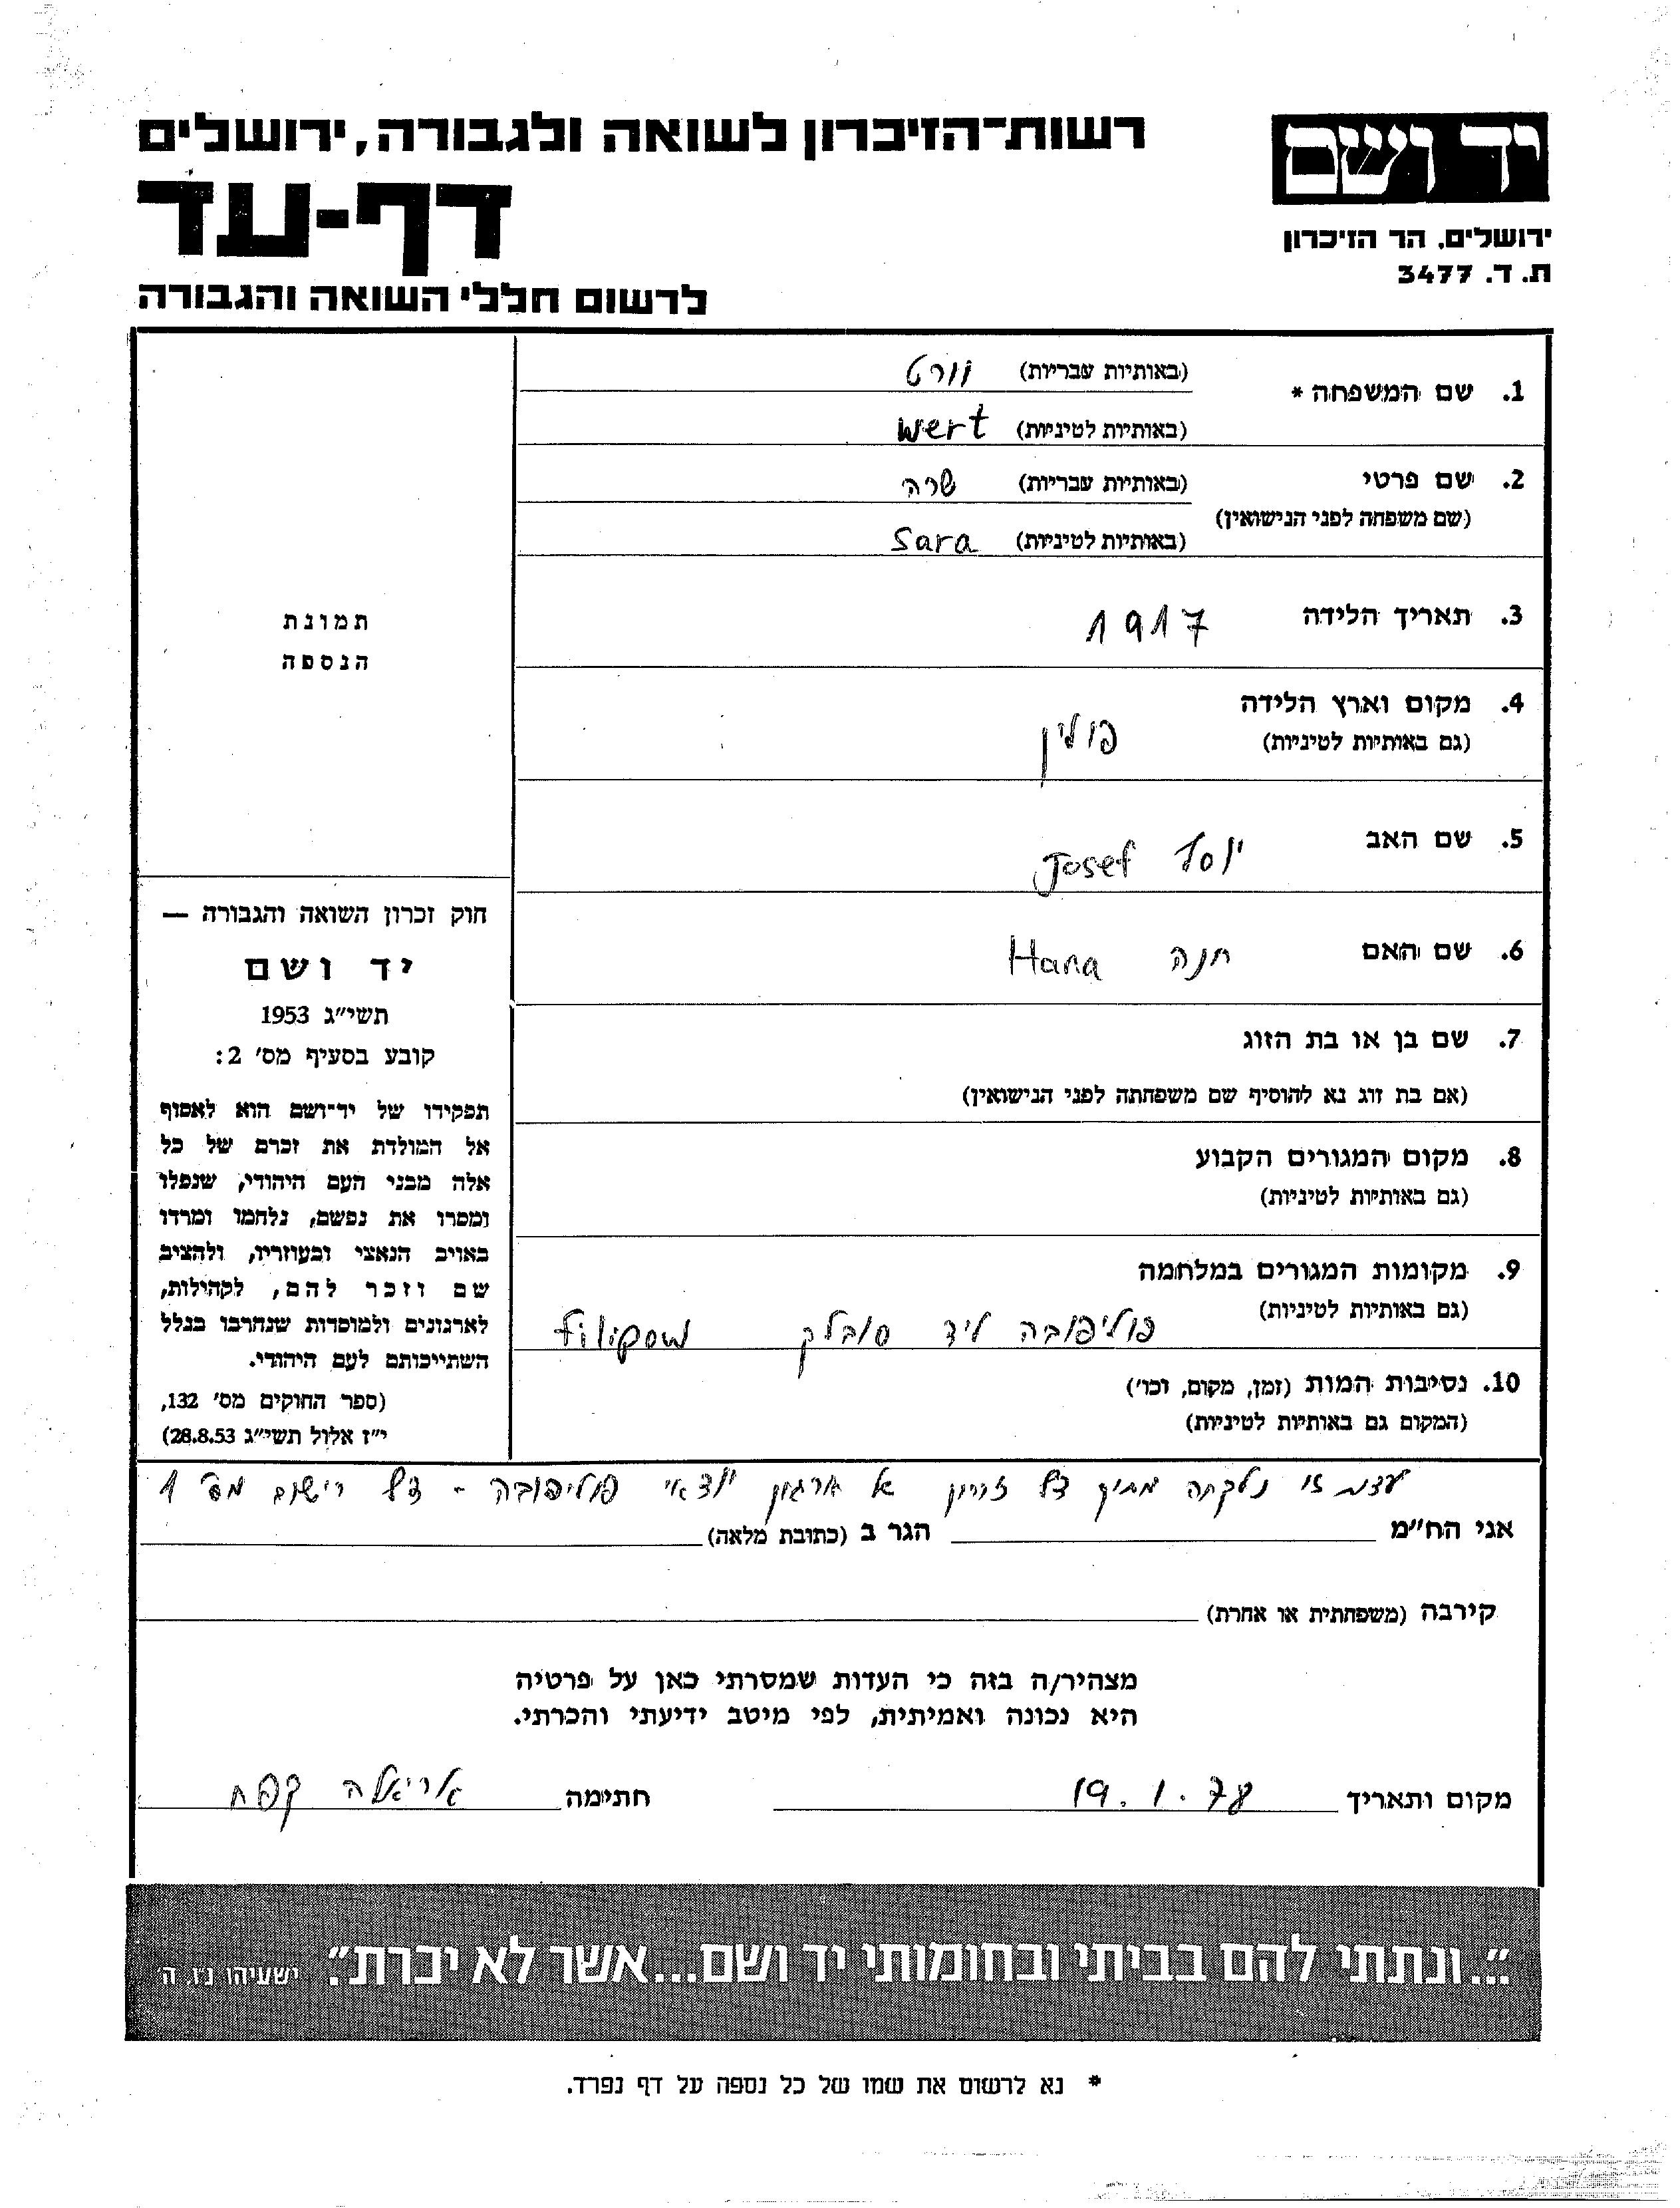 רשות־הזיכרון לשואה ולגבורה, ירושלים
דף-עד
לרשום חללי השואה והגבורה
יד ושם
ירושלים, הר הזיכרון
ת. ד. 3477
1. שם המשפחה *
(באותיות עבריות) וורט
(באותיות לטיניות) Wert
2. שם פרטי
(שם משפחה לפני הנישואין)
(באותיות עבריות) שרה
(באותיות לטיניות) Sara
3. תאריך הלידה 1917
4. מקום וארץ הלידה
(גם באותיות לטיניות) פולין
5. שם האב יוסף Josef
6. שם האם חנה Hana
7. שם בן או בת הזוג
(אם בת זוג נא להוסיף שם משפחתה לפני הנישואין)
8. מקום המגורים הקבוע
(גם באותיות לטיניות)
9. מקומות המגורים במלחמה
(גם באותיות לטיניות) פיליפובה ליד סובלק Filipow
10. נסיבות המות (זמן, מקום, וכו')
(המקום גם באותיות לטיניות)
תמונת
הנספה
חוק זכרון השואה והגבורה —
יד ושם
תשי״ג 1953
קובע בסעיף מס' 2:
תפקידו של יד־ושם הוא לאסוף
אל המולדת את זכרם של כל
אלה מבני העם היהודי, שנפלו
ומסרו את נפשם, נלחמו ומרדו
באויב הנאצי ובעוזריו, ולהציב
שם וזכר להם, לקהילות,
לארגונים ולמוסדות שנחרבו בגלל
השתייכותם לעם היהודי.
(ספר החוקים מס' 132,
י״ז אלול תשי״ג 28.8.53)
עדות זו נלקחה מתוך דף זכרון של ארגון יוצאי פיליפובה - דף רישום מס' 1
אני הח״מ הגר ב (כתובת מלאה)
קירבה (משפחתית או אחרת)
מצהיר/ה בזה כי העדות שמסרתי כאן על פרטיה
היא נכונה ואמיתית, לפי מיטב ידיעתי והכרתי.
מקום ותאריך 19.1.78 חתימה אריאלה קפח
"...ונתתי להם בביתי ובחומותי יד ושם...אשר לא יכרת". ישעיהו נ״ו, ה'
* נא לרשום את שמו של כל נספה על דף נפרד.